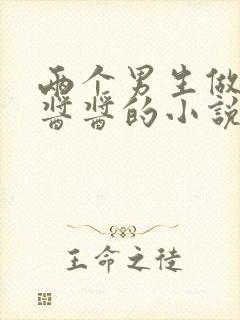 两个男生做
酱酱的小说
王命之徒